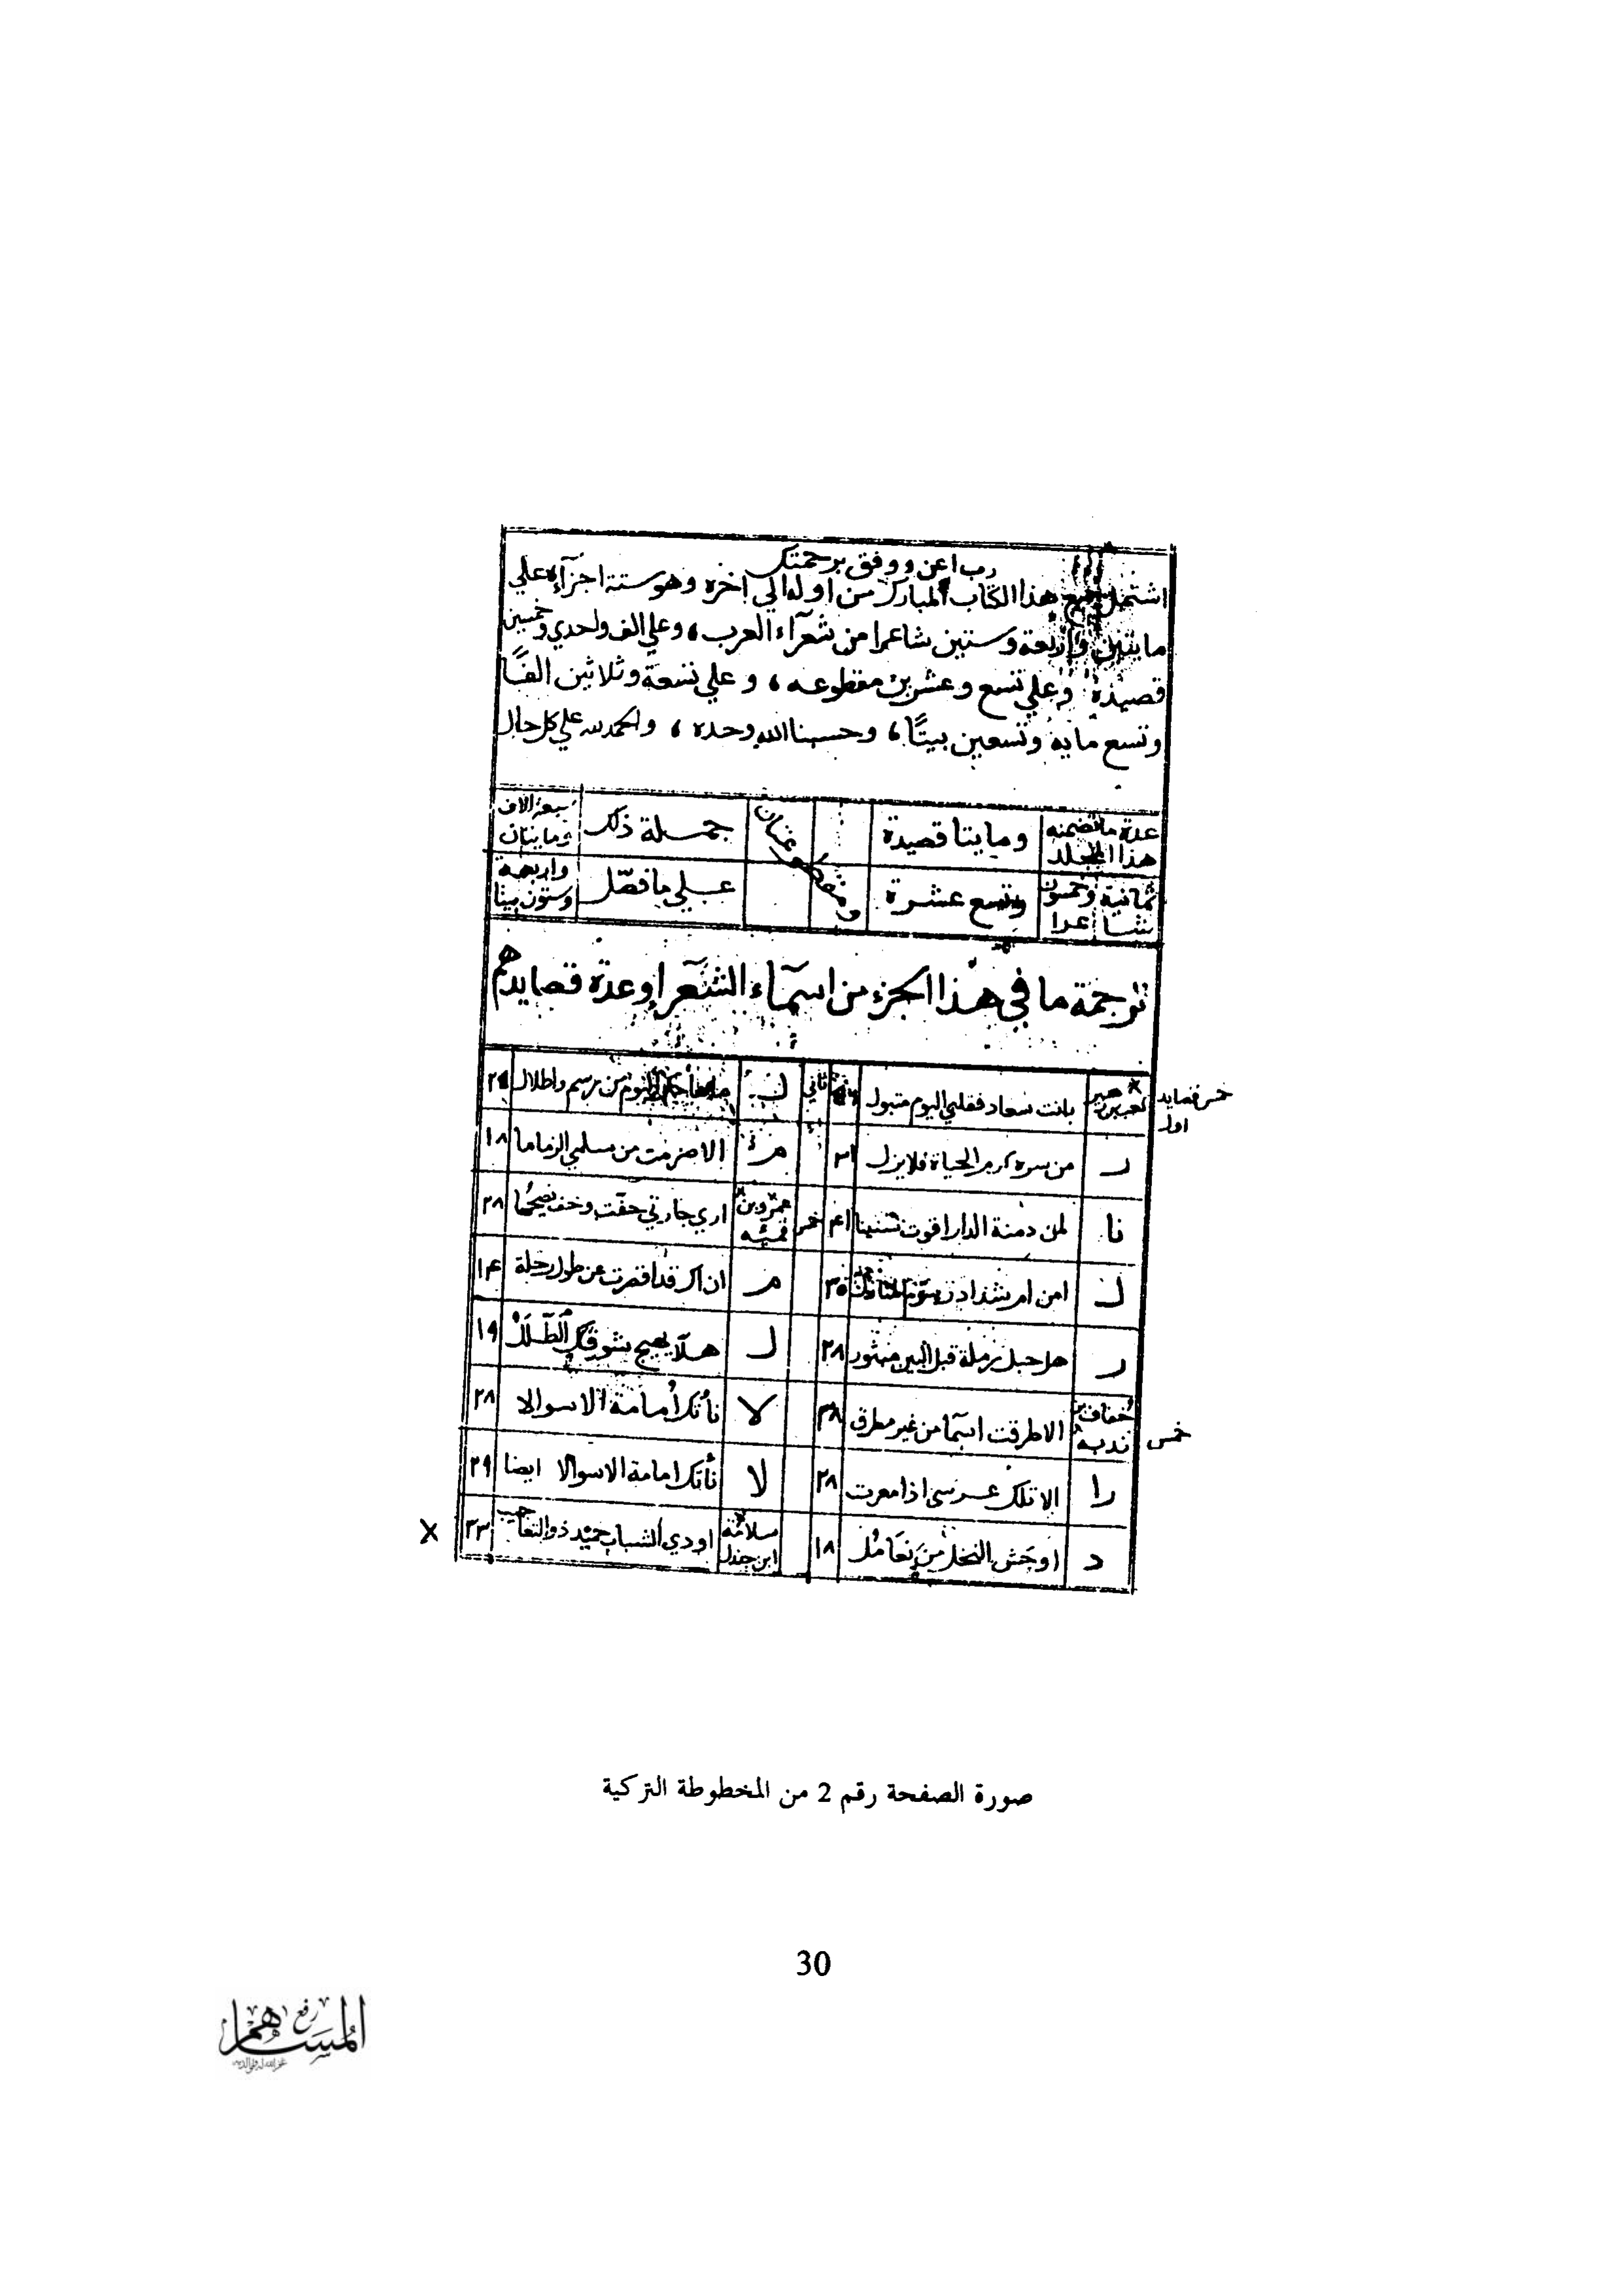 رب اعن ووفق برحمتك
اشتمل جميع هذا الكتاب المبارك من اوله الي اخره وهو ستة اجزآء علي
مايتين واربعة وستين شاعرا من شعرآء العرب، وعلي الف واحدي وخمسين
قصيدة وعلي تسع وعشرين مقطوعه، وعلي تسعة وثلاثين الفًا
وتسع مايه وتسعين بيتًا، وحسبنا الله وحده، والحمد لله علي كل حال
عدة ما تضمنه هذا المجلد | ومايتا قصيدة | ومقطوعتان | جملة ذلك | سبعة الاف ومايتان
ثمانية وخمسون شاعرا | وتسع عشرة | علي ما فصّل | واربعة وستون بيتا
ترجمة ما في هذا الجزء من اسمآء الشعرا وعدة قصايدهم
خمس قصايد اول
كعب بن زهير | بانت سعاد فقلبي اليوم متبول | ثاني | ل
من رسم واطلال | ٢٤
ر | من سره كرم الحياة فلا يزل | ٣١ | م | الا صرمت من سلمي الزماما | ١٨
نا | لمن دمنة الدار اقوت سنينا | ٤١ | خمس | عمرو بن قميئه | اري جارتي خفت وخف نصيحها | ٢٨
ل | امن ام شداد رسوم المنازل | ٣٥ | م | ان اك قد اقصرت عن طول رحلة | ١٤
ر | هل حبل رملة قبل البين مبتور | ٢٨ | ل | هلا يهيج شوقك الطلل | ١٩
خمس
خفاف بن ندبه | الا طرقت اسما من غير مطرق | ٣٨ | لا | نأتك أمامة الا سوالا | ٢٨
را | الا تلك عرسى اذا معرت | ٢٨ | لا | نأتك امامة الا سوالا ايضا | ٢٩
د | اوحش النخل من نعامل | ١٨ | سلامة ابن جندل | اودي الشباب حميد ذو التعاجيب | ٣٣
X
صورة الصفحة رقم 2 من المخطوطة التركية
30
رفع
المساهم
غفر الله له ولوالديه